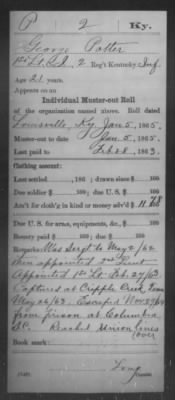 P 2 Ky.
George Potter
1st Lt Co I, 2 Reg't Kentucky Inf.
Age 21 years.
Appears on an
Individual Muster-out Roll
of the organization named above. Roll dated
Louisville, Ky Jan 5, 1865.
Muster-out to date Jan 5, 1865.
Last paid to Feb 28, 1863.
Clothing account:
Last settled , 186 ; drawn since $ 100
Due soldier $ 100; due U. S. $ 100
Am't for cloth'g in kind or money adv'd $ 11 68
Due U. S. for arms, equipments, &c., $ 100
Bounty paid $ 100; due $ 100
Remarks: Was Sergt to May 2/62
then appointed 2nd Lieut
Appointed 1st Lt Feb. 27/63.
Captured at Cripple Creek Tenn
May 16/63. Escaped Nov 29/64
from prison at Columbia
S.C. Reached Union lines
(over
Book mark:
Copyist.